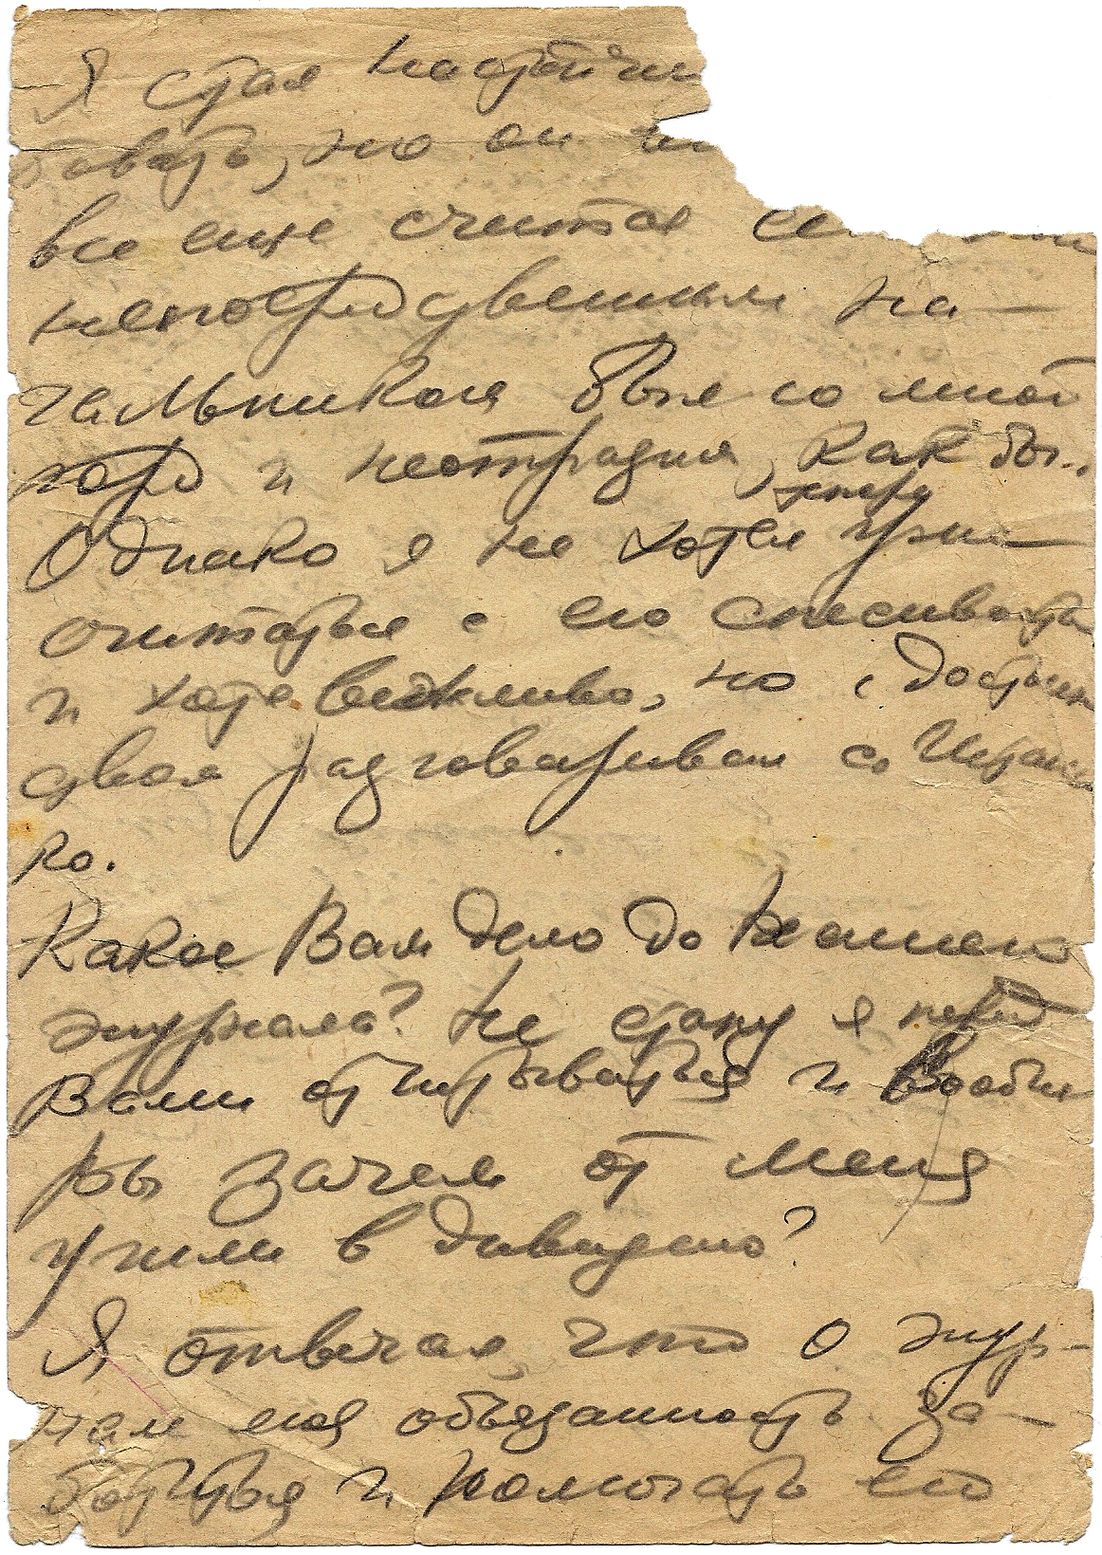 Я стал настойчи
бовать, но он
все еще считая се
непосредственным на-
чальником был со мной
горд и неотразим, как бы.
теперь
Однако я не хотел
считаться с его спесивость
и хотя вежливо, но с достоин
ством разговаривал с
ко.
Какое Вам дело до нашего
журнала? Не стану я перед
Вами отчитываться и вообще
зачем от меня
ушли в дивизию?
Я отвечал, что о жур-
нале моя обязанность за-
ботиться и помогать его